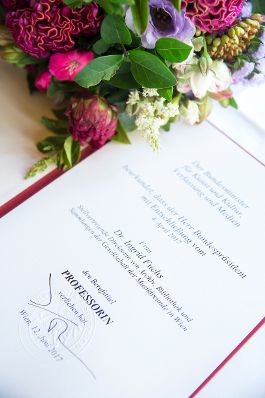 Der Bundesminister
für Kunst und Kultur,
Verfassung und Medien
beurkundet, dass der Herr Bundespräsident
mit Entschließung vom
6. April 2017
Frau
Dr. Ingrid Fuchs
Stellvertretende Direktorin von Archiv, Bibliothek und
Sammlungen der Gesellschaft der Musikfreunde in Wien
den Berufstitel
PROFESSORIN
verliehen hat.
Wien, 12. Juni 2017